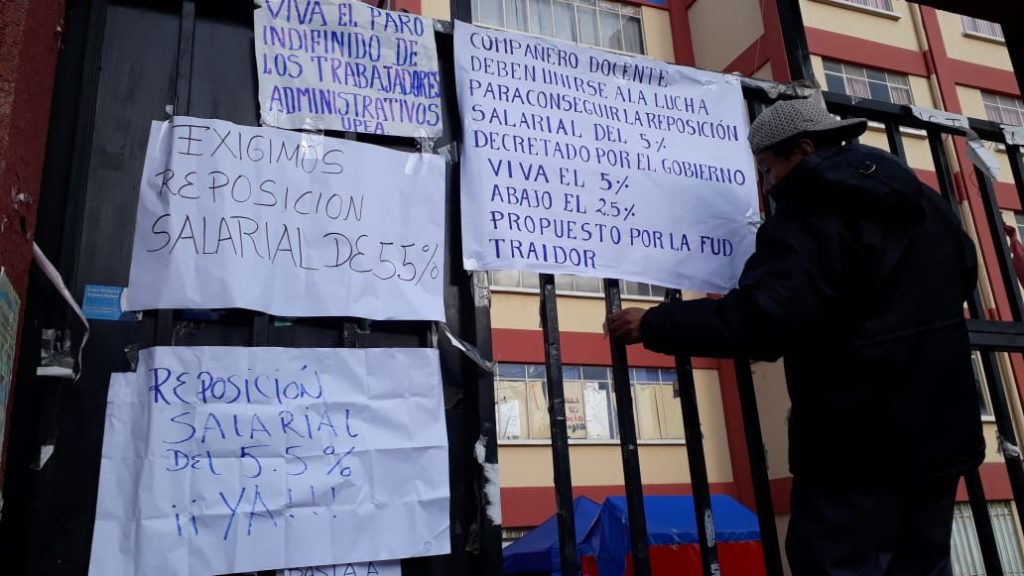 VIVA EL PARO
INDIFINIDO DE
LOS TRABAJADORES
ADMINISTRATIVOS
UPEA
EXIGIMOS
REPOSICION
SALARIAL DE 5.5%
REPOSICIÓN
SALARIAL
DEL 5.5%
¡¡YA!!!
BASTA A
COMPAÑERO DOCENTE
DEBEN UNIRSE A LA LUCHA
PARA CONSEGUIR LA REPOSICIÓN
SALARIAL DEL 5%
DECRETADO POR EL GOBIERNO
VIVA EL 5%
ABAJO EL 2.5%
PROPUESTO POR LA FUD
TRAIDOR